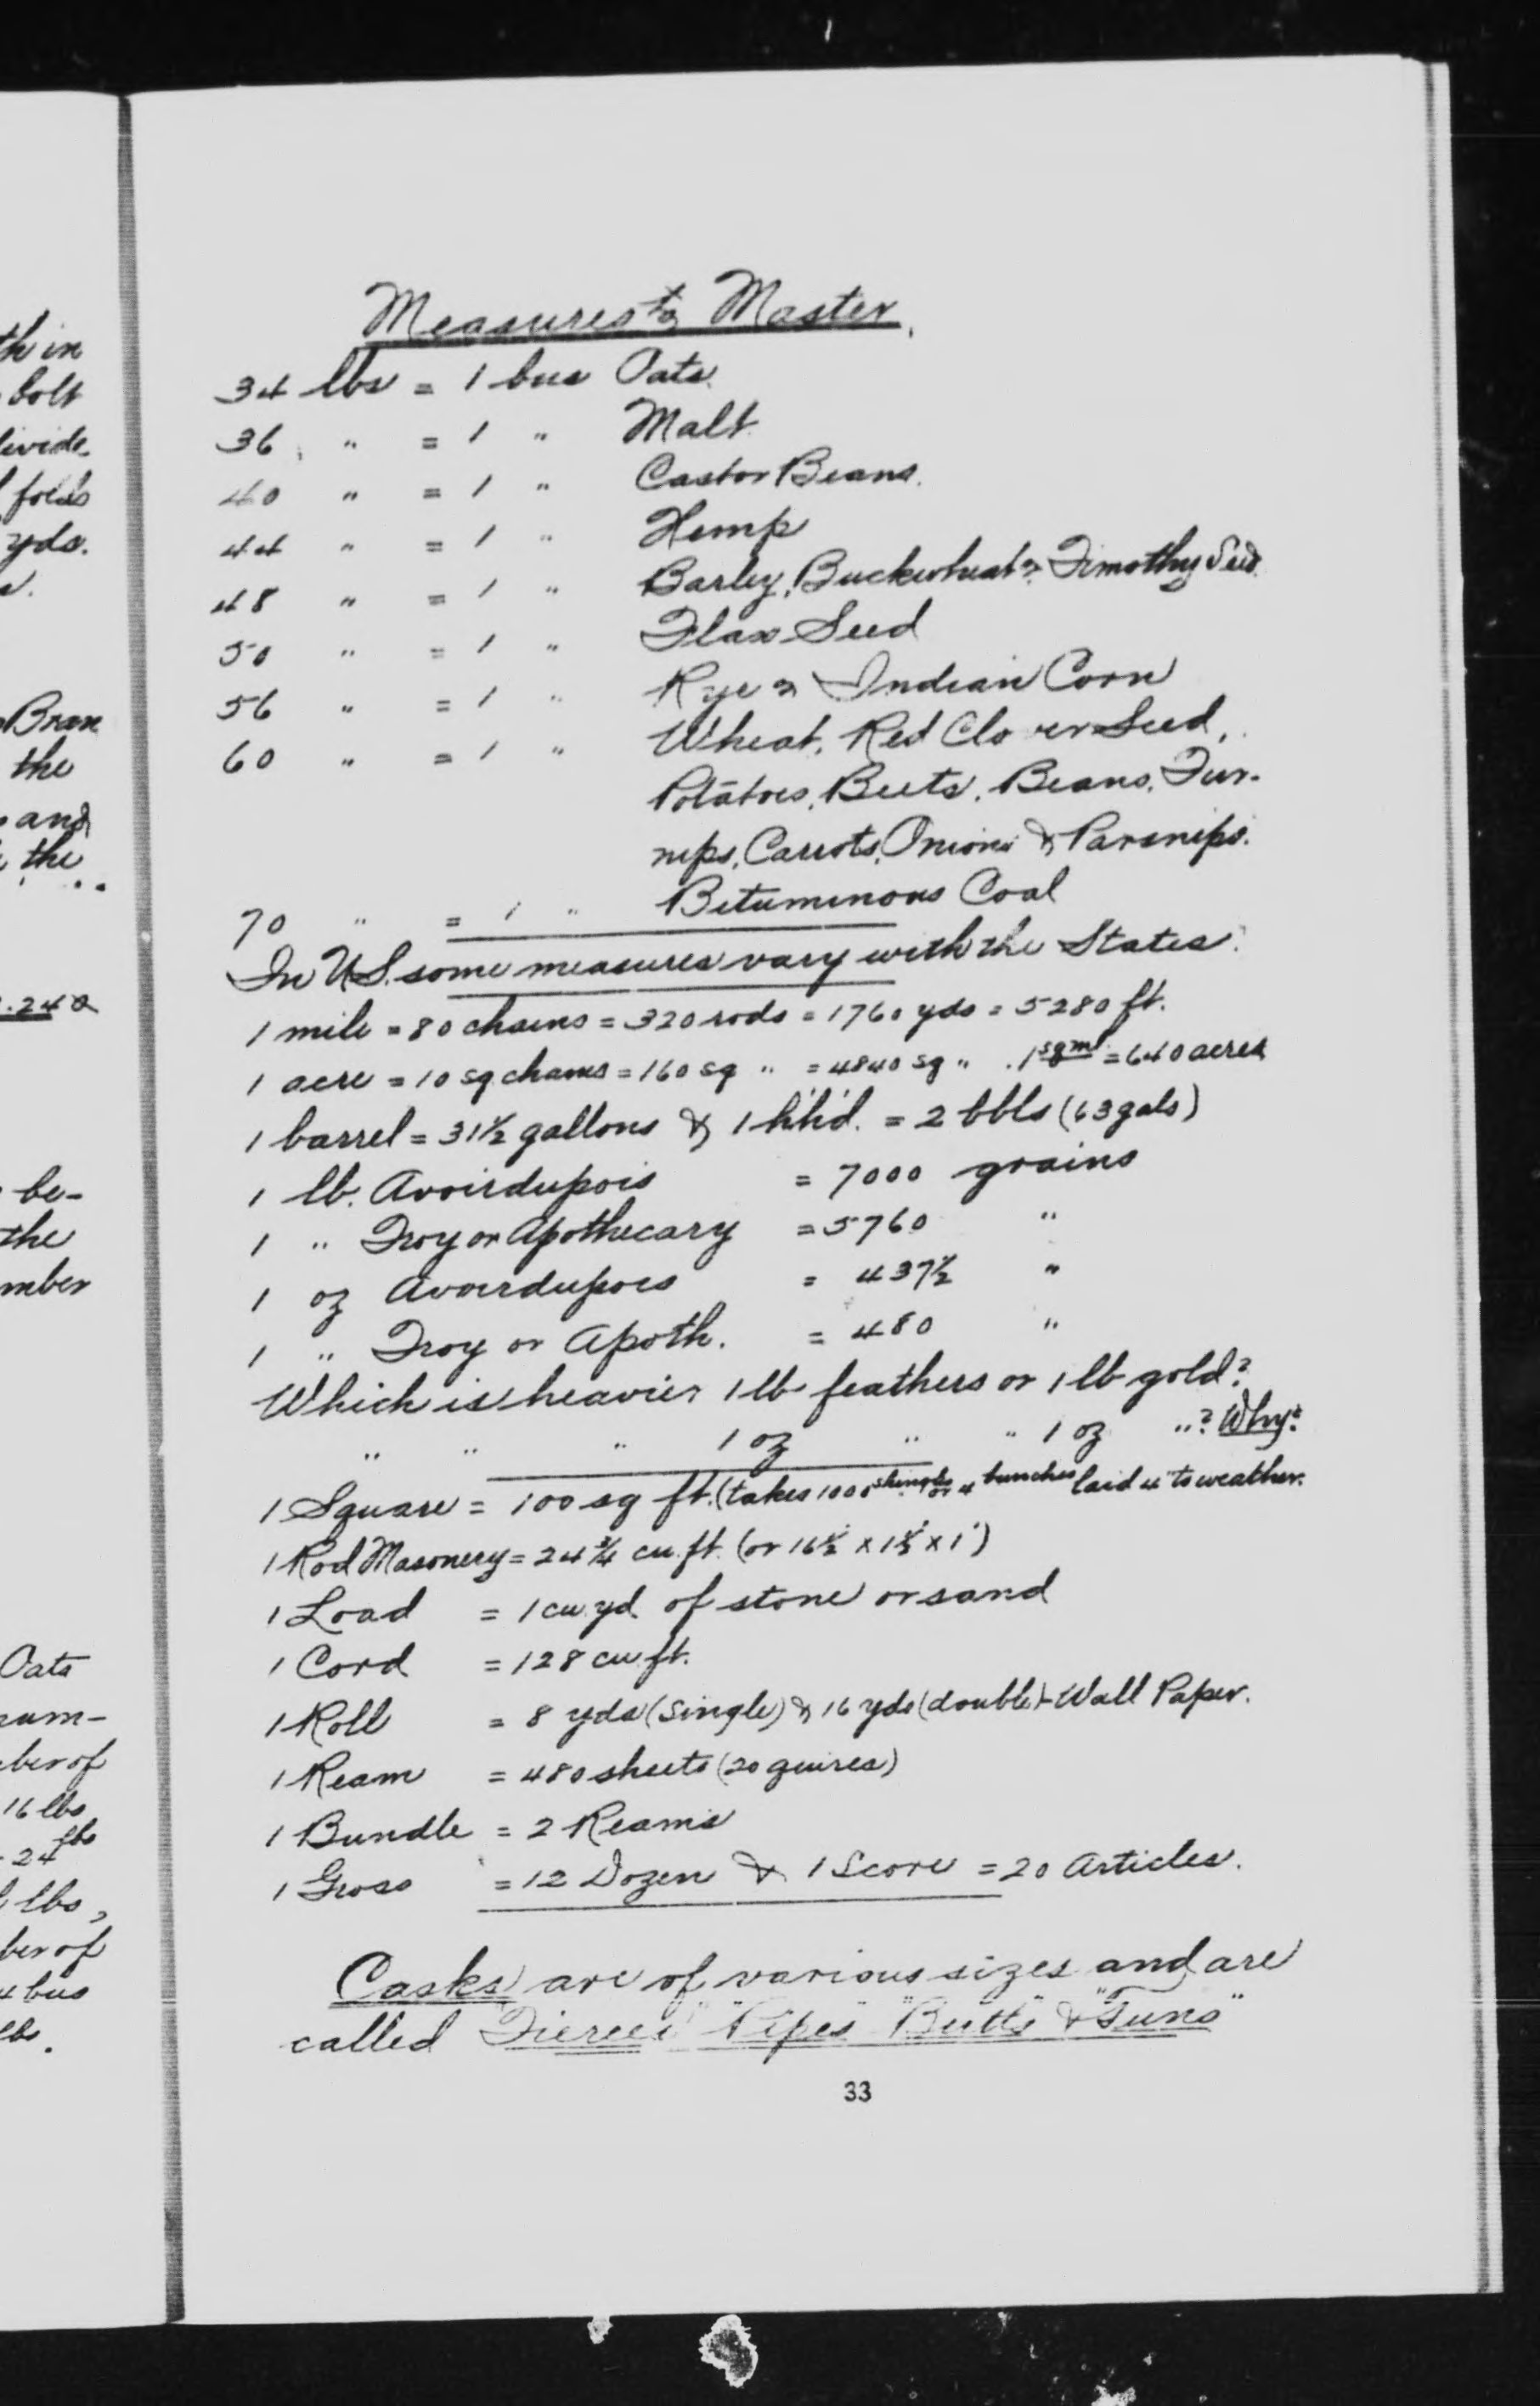 th in
bolt
divide
folds
yds.
s.
Bran
the
and
the
.240
be-
the
mber
Oats
num-
ber of
16 lbs
24 lbs
lbs,
ber of
4 bus
lbs.
Measures to Master.
34 lbs = 1 bus Oats.
36 " = 1 " Malt.
40 " = 1 " Castor Beans.
44 " = 1 " Hemp
48 " = 1 " Barley, Buckwheat & Timothy Seed.
50 " = 1 " Flax Seed
56 " = 1 " Rye & Indian Corn
60 " = 1 " Wheat, Red Clover Seed,
Potatoes, Beets, Beans, Tur-
nips, Carrots, Onions & Parsnips.
70 " = 1 " Bituminous Coal
In U.S. some measures vary with the States.
1 mile = 80 chains = 320 rods = 1760 yds = 5280 ft.
1 acre = 10 sq chains = 160 sq " = 4840 sq " . 1 sq ml = 640 acres
1 barrel = 31½ gallons & 1 hhd. = 2 bbls (63 gals)
1 lb. Avoirdupois = 7000 grains
1 " Troy or Apothecary = 5760 "
1 oz Avoirdupois = 437½ "
1 " Troy or Apoth. = 480 "
Which is heavier 1 lb feathers or 1 lb gold?
" " " 1 oz " " 1 oz "? Why?
1 Square = 100 sq ft. (takes 1000 shingles or 4 bunches laid 4" to weather.
1 Rod Masonery = 24¾ cu. ft. (or 16½' x 1½' x 1')
1 Load = 1 cu. yd. of stone or sand
1 Cord = 128 cu. ft.
1 Roll = 8 yds (single) & 16 yds (double) - Wall Paper.
1 Ream = 480 sheets (20 quires)
1 Bundle = 2 Reams
1 Gross = 12 Dozen & 1 Score = 20 Articles.
Casks are of various sizes and are
called "Tierces" "Pipes" "Butts" & "Tuns"
33